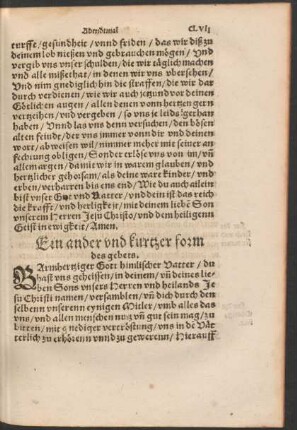 Abendtmal CLVIj
turfft / gesundheit / vnnd friden / das wir diß zu
deinem lob niessen vnd gebrauchen mögen / Vnd
vergib vns vnser schulden / die wir täglich machen
vnd alle missethat / in denen wir vns vbersehen /
Vnd nim gnediglich hin die straffen / die wir dar
durch verdienen / wie wir auch jetzund vor deinen
Götlichen augen / allen denen vonn hertzen gern
verzeihen / vnd vergeben / so vns je leids gethan
haben / Vnnd las vns denn versucher / den bösen
alten feinde / der vns immer vonn dir vnd deinem
wort / abweisen wil / nimmer meher mit seiner an
fechtung obligen / Sonder erlöse vns von im / vñ
allem argen / da mit wir in warem glauben / vnd
hertzlicher gehorsam / als deine ware kinder / vnd
erben / verharren bis ens end / Wie du auch allein
bist vnser Got vnd Vatter / vnnd dein ist das reich
die krafft / vnd herligkeit / mit deinem liebē Son
vnserem Herren Jesu Christo / vnd dem heiligenn
Geist in ewigkeit / Amen.
Ein ander vnd kurtzer form
des gebets.
BArmhertziger Gott himlischer Vatter / du
hast vns geheissen / in deinem / vñ deines lie-
ben Sons vnsers Herren vnd heilands Je
su Christi namen / versamblen / vñ dich durch den
selbenn vnserenn eynigen Mitler / vmb alles das
vns / vnd allen menschen nutz vñ gut sein mag / zu
bitten / mit gnediger vertröstung / vns in dē Vät
terlich zu erhörenn vnnd zu geweren / Hierauff